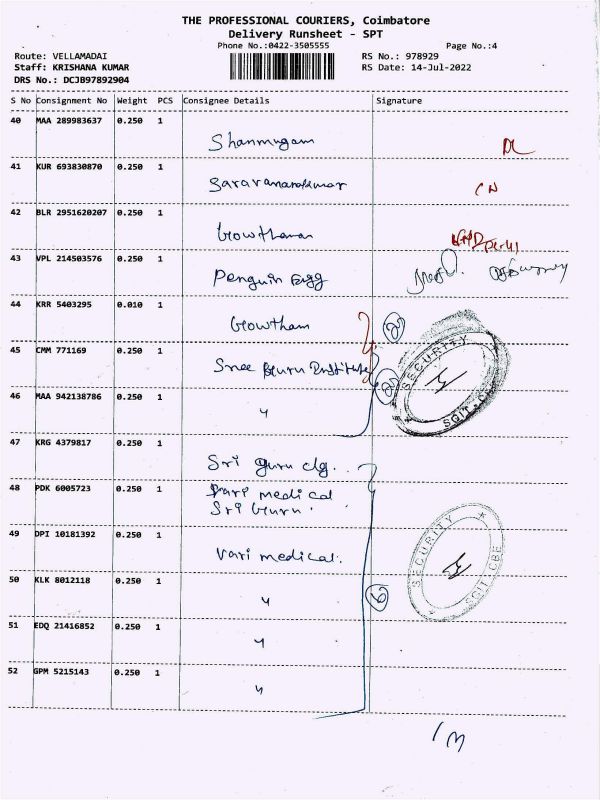 THE PROFESSIONAL COURIERS, Coimbatore
Delivery Runsheet - SPT
Phone No.:0422-3505555
Page No.:4
Route: VELLAMADAI
RS No.: 978929
Staff: KRISHANA KUMAR
RS Date: 14-Jul-2022
DRS No.: DCJB97892904
S No Consignment No Weight PCS Consignee Details Signature
40 MAA 289983637 0.250 1
Shanmugam
41 KUR 693830870 0.250 1
Saravanakumar
42 BLR 2951620207 0.250 1
Gowthaman
43 VPL 214503576 0.250 1
Penguin Egg
44 KRR 5403295 0.010 1
Gowtham
45 CMM 771169 0.250 1
Sree Guru Institute
46 MAA 942138786 0.250 1
"
47 KRG 4379817 0.250 1
Sri guru clg.
48 PDK 6005723 0.250 1
Vari medical
Sri Guru.
49 DPI 10181392 0.250 1
Vari medical.
50 KLK 8012118 0.250 1
"
51 EDQ 21416852 0.250 1
"
52 GPM 5215143 0.250 1
"
2
2
SECURITY
SGIT-CBE
6
SECURITY
SGIT-CBE